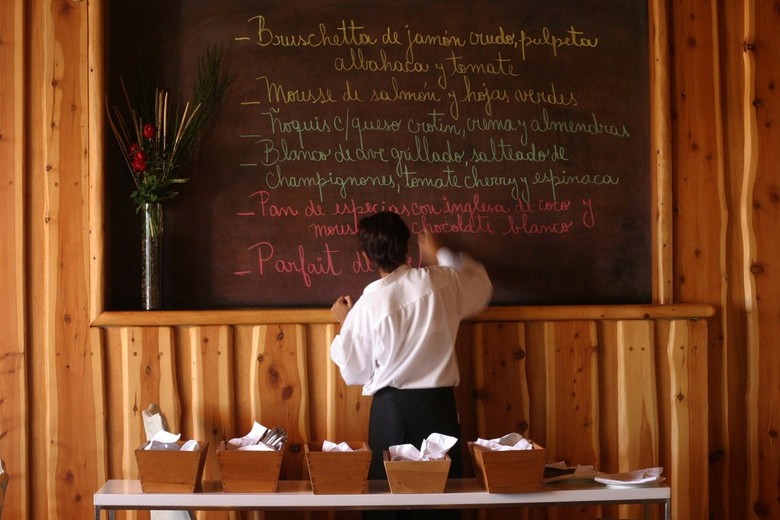 _ Bruschetta de jamón crudo, palpeta
albahaca y tomate
_ Mousse de salmón y hojas verdes
_ Ñoquis c/queso crotin, crema y almendras
_ Blanco de ave grillado, salteado de
Champignones, tomate cherry y espinaca
_ Pan de especias con inglesa de coco y
chocolate blanco
_ Parfait